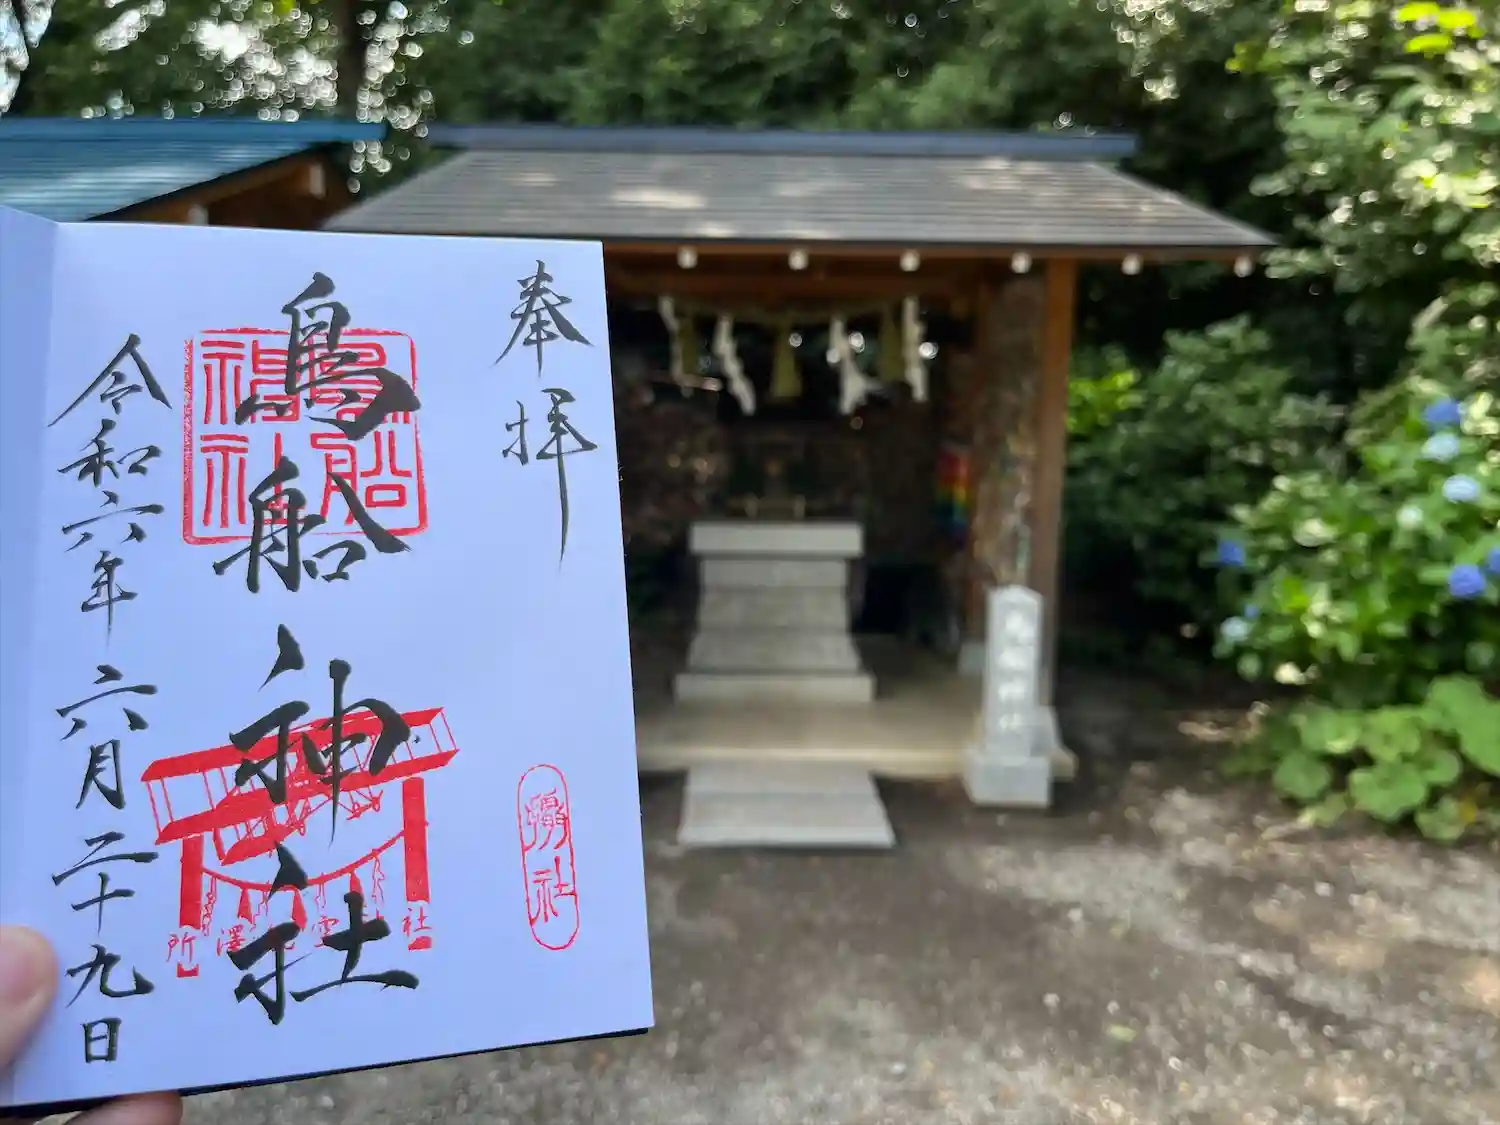 奉拝
鳥船神社
令和六年六月二十九日
鳥船
神社
摂社
鳥船神社